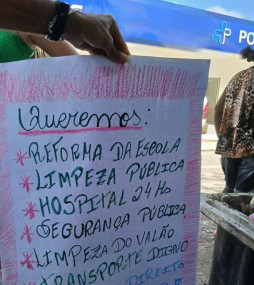 PO
Queremos:
* REFORMA DA ESCOLA
* LIMPEZA PÚBLICA
* HOSPITAL 24 Hs
* SEGURANÇA PÚBLICA
* LIMPEZA DO VALÃO
* TRANSPORTE DIGNO
DIREITO